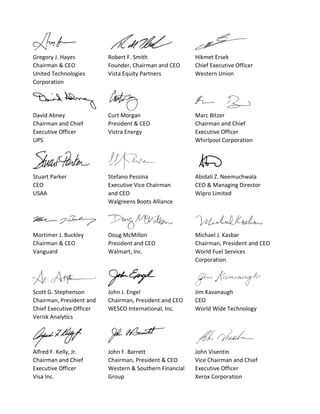 Gregory J. Hayes
Chairman & CEO
United Technologies
Corporation
Robert F. Smith
Founder, Chairman and CEO
Vista Equity Partners
Hikmet Ersek
Chief Executive Officer
Western Union
David Abney
David Abney
Chairman and Chief
Executive Officer
UPS
Curt Morgan
President & CEO
Vistra Energy
Marc Bitzer
Chairman and Chief
Executive Officer
Whirlpool Corporation
Stuart Parker
Stuart Parker
CEO
USAA
Stefano Pessina
Executive Vice Chairman
and CEO
Walgreens Boots Alliance
Abidali Z. Neemuchwala
CEO & Managing Director
Wipro Limited
Mortimer J. Buckley
Chairman & CEO
Vanguard
Doug McMillon
Doug McMillon
President and CEO
Walmart, Inc.
Michael J. Kasbar
Chairman, President and CEO
World Fuel Services
Corporation
Scott G. Stephenson
Chairman, President and
Chief Executive Officer
Verisk Analytics
John Engel
John J. Engel
Chairman, President and CEO
WESCO International, Inc.
Jim Kavanaugh
Jim Kavanaugh
CEO
World Wide Technology
Alfred F. Kelly, Jr.
Chairman and Chief
Executive Officer
Visa Inc.
John F. Barrett
Chairman, President & CEO
Western & Southern Financial
Group
John Visentin
Vice Chairman and Chief
Executive Officer
Xerox Corporation